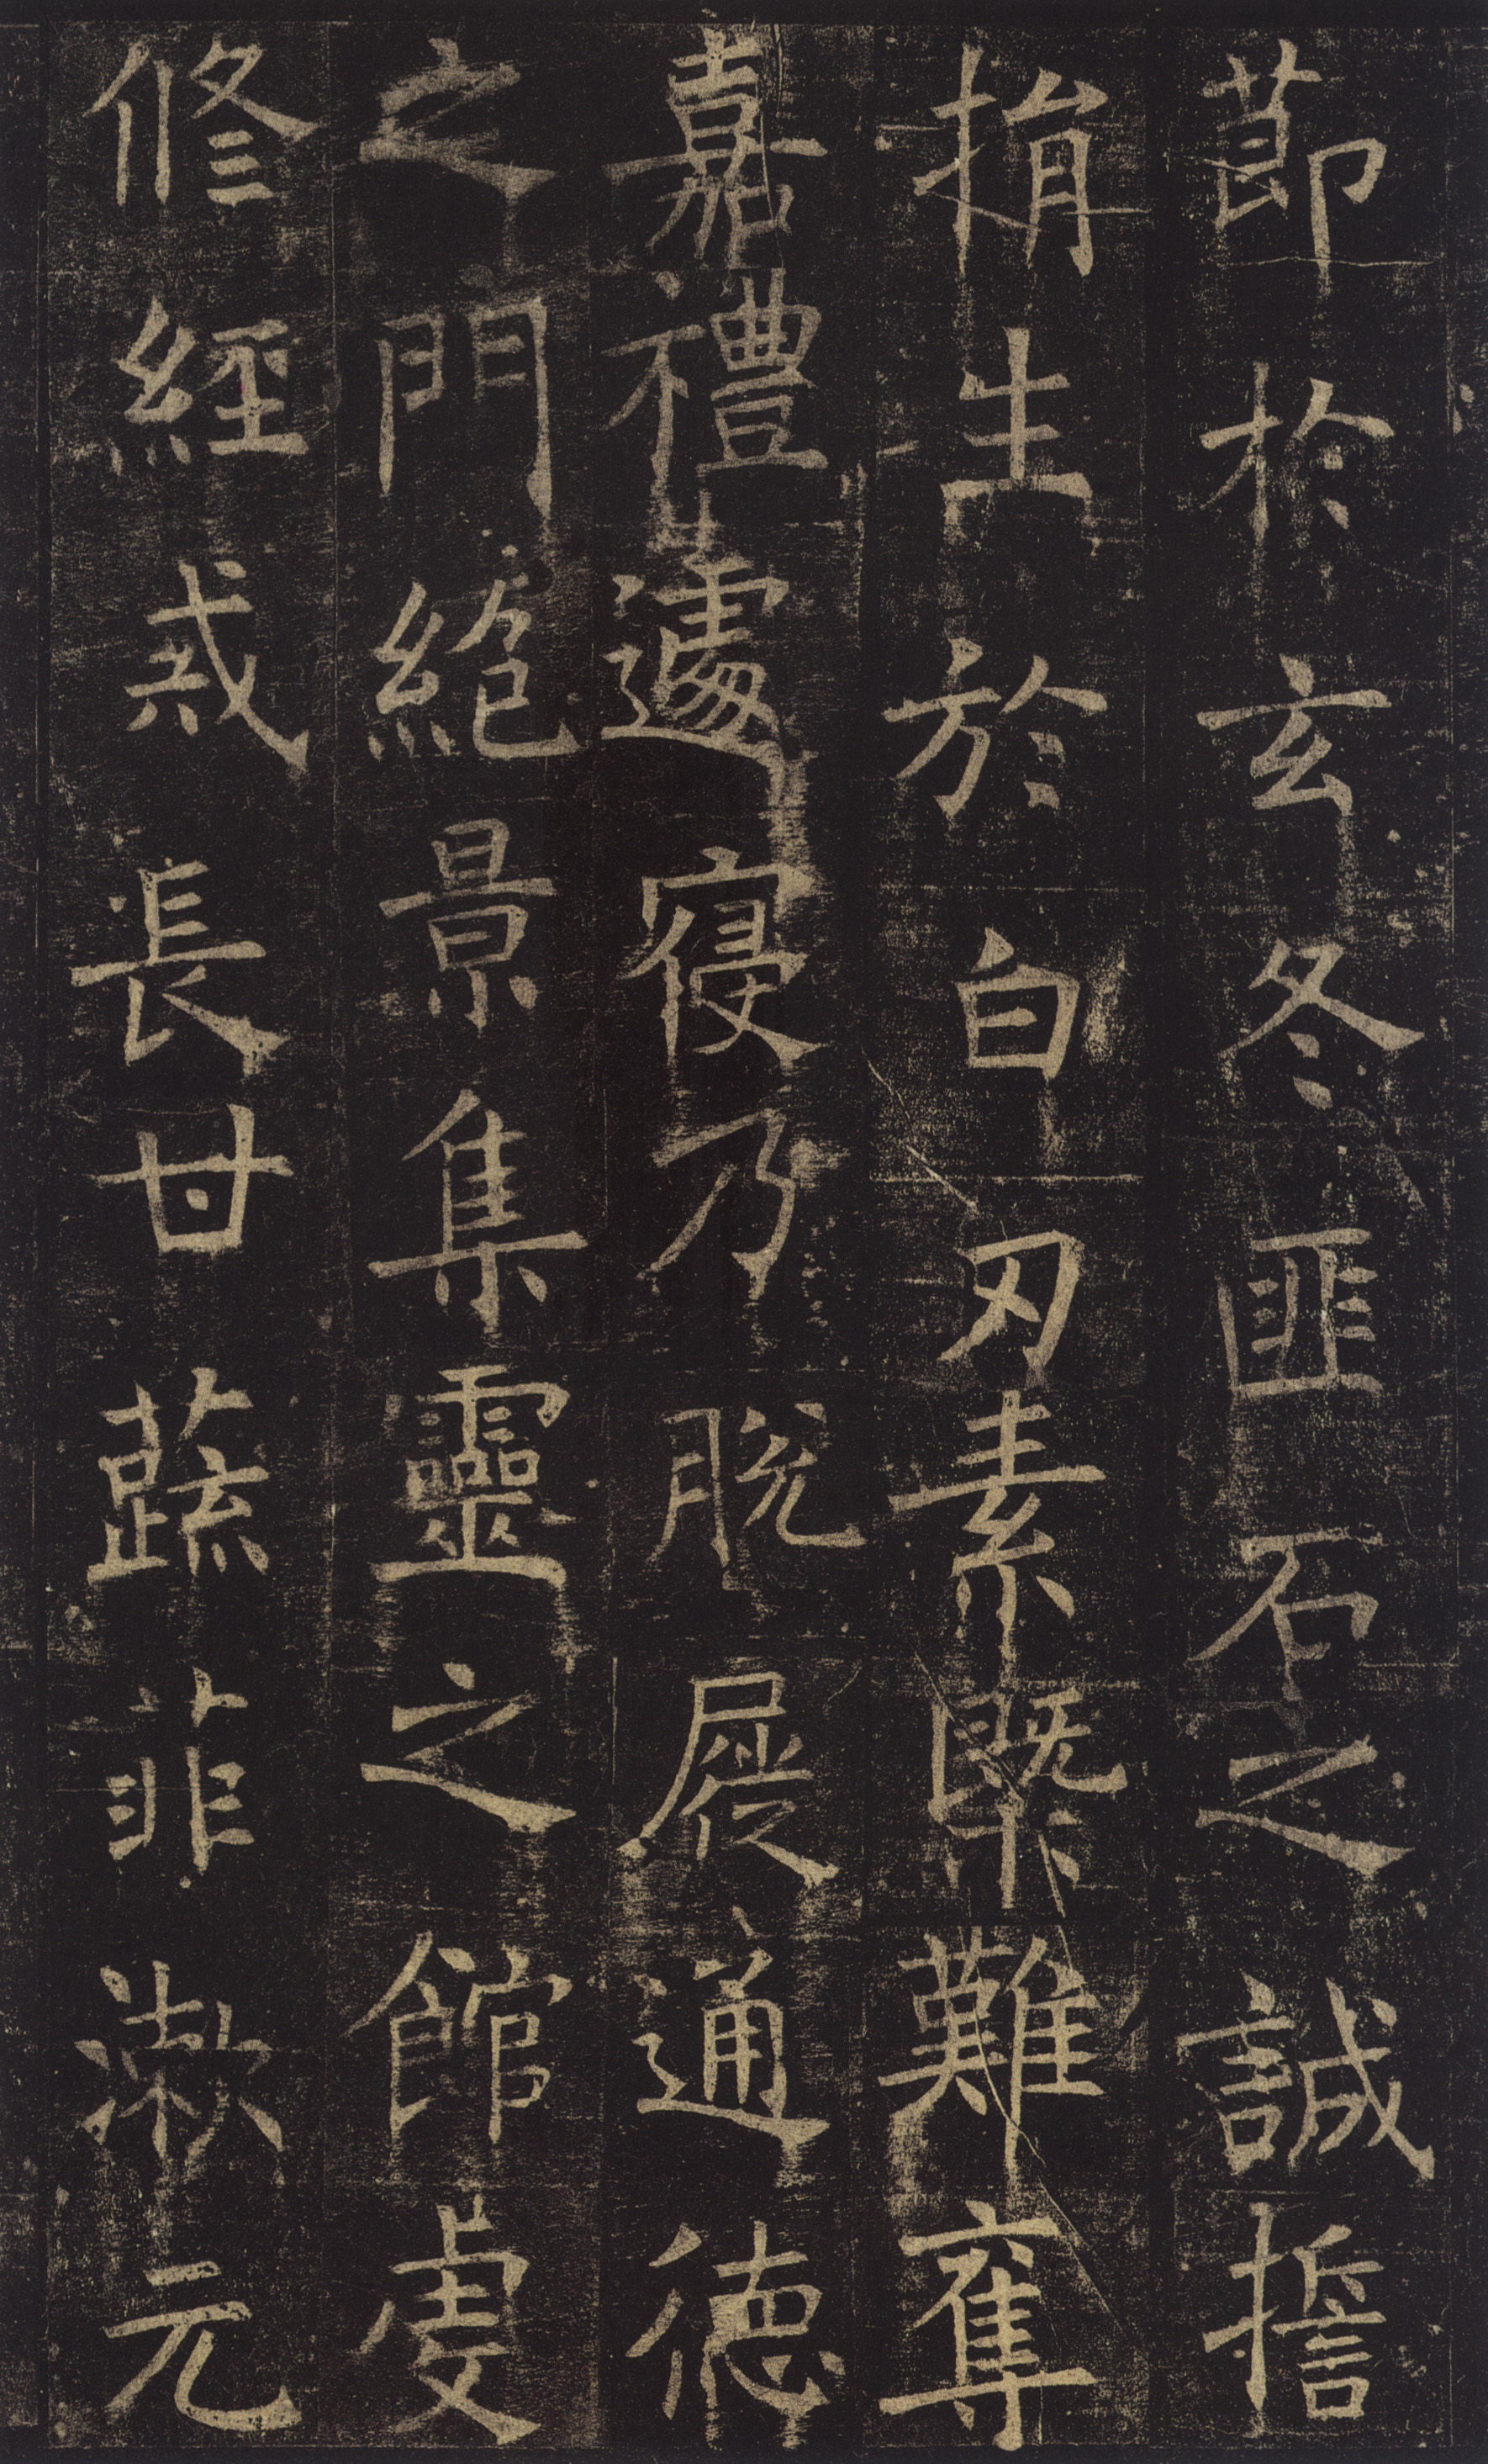 節於玄冬匪石之誠擔
捐生於白刃素槩難奪
嘉禮遽寢乃脱屣通德
之門絶景集靈之館虔
修經戒長甘蔬菲漱元